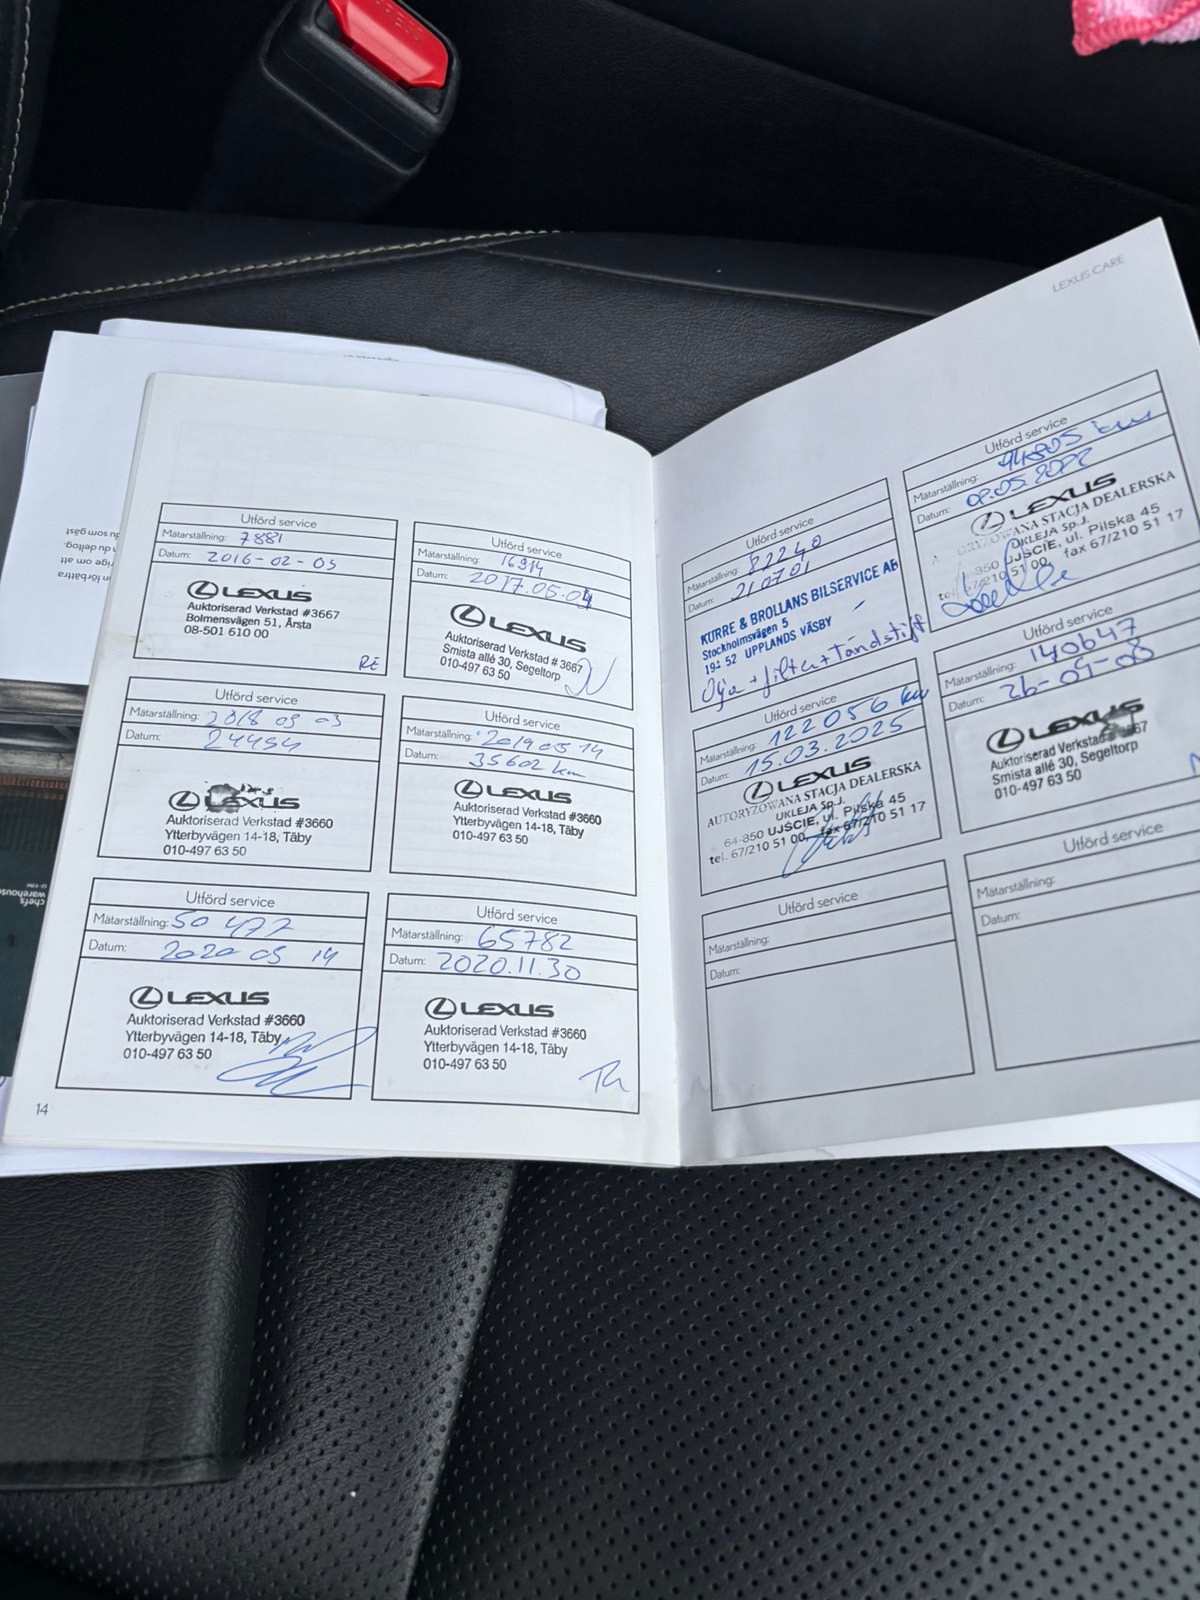 PRESS
LEXUS CARE
Utförd service
Mätarställning: 7881
Datum: 2016-02-03
LEXUS
Auktoriserad Verkstad #3667
Bolmensvägen 51, Årsta
08-501 610 00
RE
Utförd service
Mätarställning: 16914
Datum: 2017.05.04
LEXUS
Auktoriserad Verkstad #3667
Smista allé 30, Segeltorp
010-497 63 50
Utförd service
Mätarställning: 2018 03 03
Datum: 24454
LEXUS
Auktoriserad Verkstad #3660
Ytterbyvägen 14-18, Täby
010-497 63 50
Utförd service
Mätarställning: 2019 05 14
Datum: 35602 km
LEXUS
Auktoriserad Verkstad #3660
Ytterbyvägen 14-18, Täby
010-497 63 50
Utförd service
Mätarställning: 50 477
Datum: 2020 05 14
LEXUS
Auktoriserad Verkstad #3660
Ytterbyvägen 14-18, Täby
010-497 63 50
Utförd service
Mätarställning: 65782
Datum: 2020.11.30
LEXUS
Auktoriserad Verkstad #3660
Ytterbyvägen 14-18, Täby
010-497 63 50
14
Utförd service
Mätarställning: 82240
Datum: 210701
KURRE & BROLLANS BILSERVICE AB
Stockholmsvägen 5
194 52 UPPLANDS VÄSBY
Olja + filter + Tändstift
Utförd service
Mätarställning: 94805 km
Datum: 02.05.2022
LEXUS
STACJA DEALERSKA
UKLEJA Sp.J.
UJŚCIE, ul. Pilska 45
fax 67/210 51 17
Utförd service
Mätarställning: 122 056 km
Datum: 15.03.2025
LEXUS
AUTORYZOWANA STACJA DEALERSKA
UKLEJA Sp.J.
64-850 UJŚCIE, ul. Pilska 45
tel. 67/210 51 00, fax 67/210 51 17
Utförd service
Mätarställning: 140647
Datum: 26-01-08
LEXUS
Auktoriserad Verkstad
Smista allé 30, Segeltorp
010-497 63 50
Utförd service
Mätarställning:
Datum:
Utförd service
Mätarställning:
Datum:
chefs
warehouse